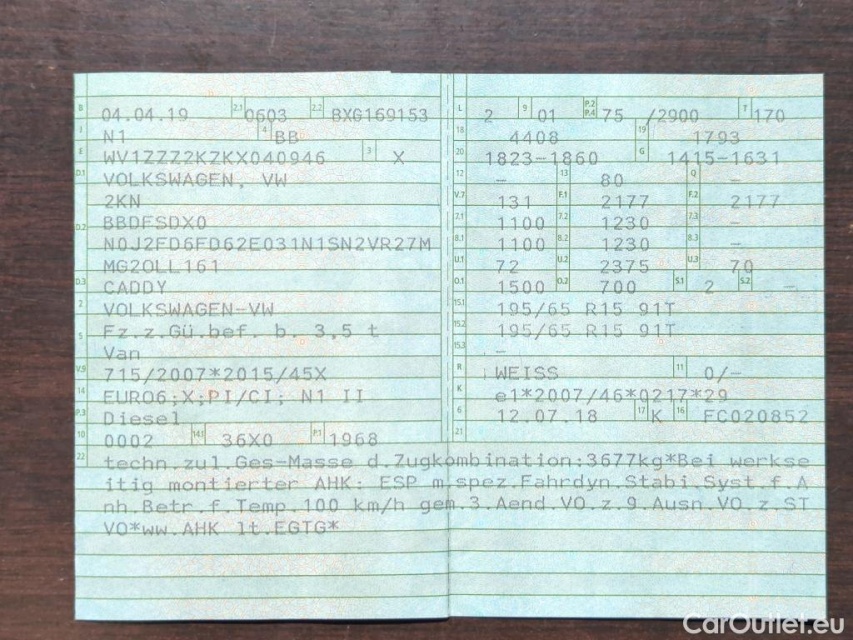 B 04.04.19 2.1 0603 2.2 BXG169153
J N1 4 BB
E WV1ZZZ2KZKX040946 3 X
D.1 VOLKSWAGEN, VW
2KN
D.2 BBDFSDX0
N0J2FD6FD62E031N1SN2VR27M
MG2OLL161
D.3 CADDY
2 VOLKSWAGEN-VW
5 Fz.z.Gü.bef. b. 3,5 t
Van
V.9 715/2007*2015/45X
14 EURO6;X;PI/CI; N1 II
P.3 Diesel
10 0002 14.1 36X0 P.1 1968
L 2 9 01 P.2 P.4 75 /2900 T 170
18 4408 19 1793
20 1823-1860 G 1415-1631
12 - 13 80 Q -
V.7 131 F.1 2177 F.2 2177
7.1 1100 7.2 1230 7.3 -
8.1 1100 8.2 1230 8.3 -
U.1 72 U.2 2375 U.3 70
O.1 1500 O.2 700 S.1 2 S.2 -
15.1 195/65 R15 91T
15.2 195/65 R15 91T
15.3 -
R WEISS 11 0/-
K e1*2007/46*0217*29
6 12.07.18 17 K 16 FC020852
21
22 techn.zul.Ges-Masse d.Zugkombination:3677kg*Bei werkse
itig montierter AHK: ESP m.spez.Fahrdyn.Stabi.Syst.f.A
nh.Betr.f.Temp.100 km/h gem.3.Aend.VO.z.9.Ausn.VO.z.ST
VO*ww.AHK lt.EGTG*
CarOutlet.eu